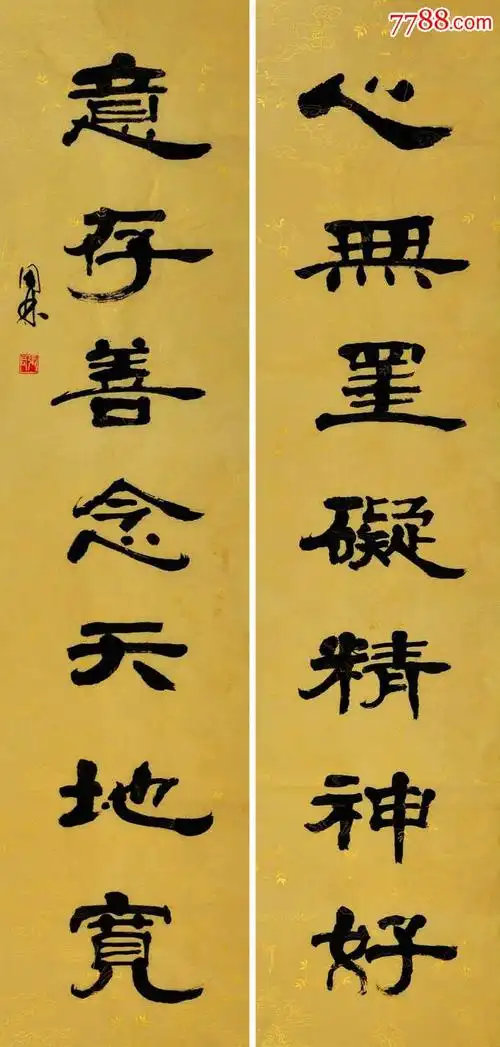 7788.com
心無罣礙精神好
意存善念天地寬